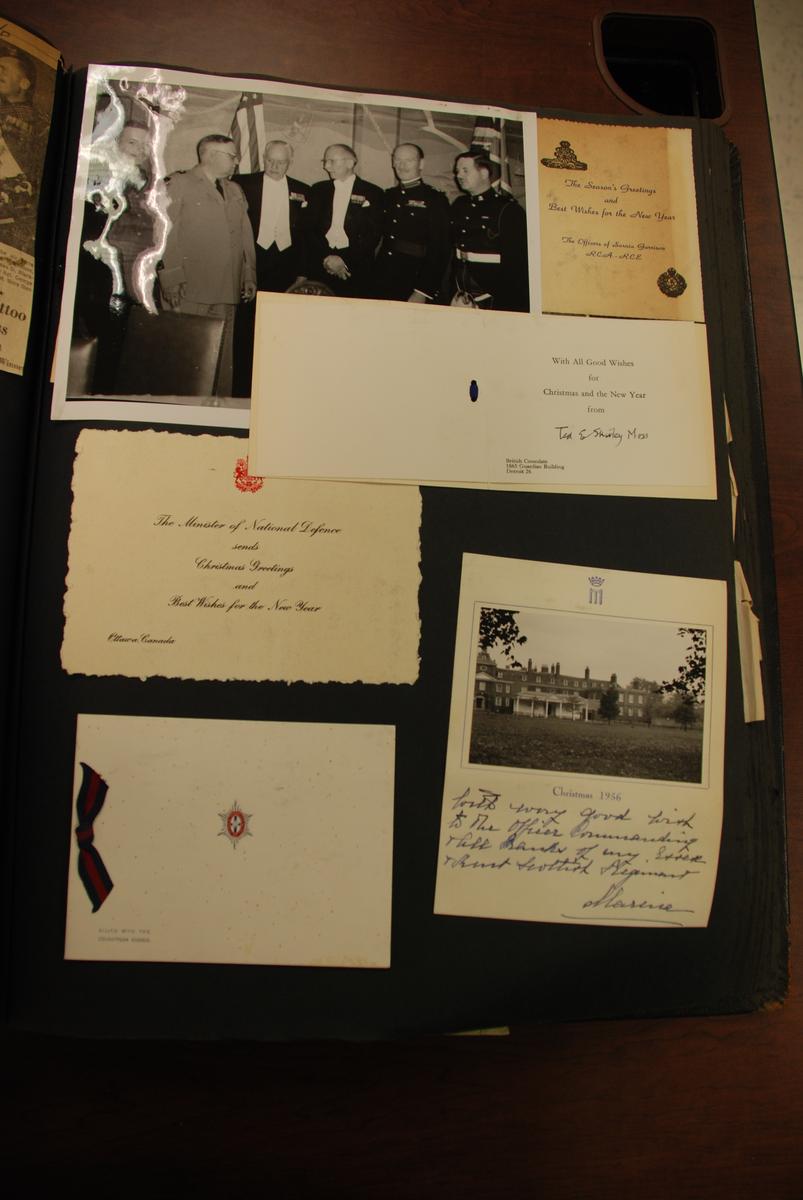 ttoo
The Season's Greetings
and
Best Wishes for the New Year
The Officers of Sarnia Garrison
R.C.A. - R.C.E.
With All Good Wishes
for
Christmas and the New Year
from
Ted & Shirley
British Consulate
1665 Guardian Building
Detroit 26
The Minister of National Defence
sends
Christmas Greetings
and
Best Wishes for the New Year
Ottawa, Canada
M
Christmas 1956
With every good wish
to the Officer Commanding
& All Ranks of my Essex
& Kent Scottish Regiment
Marina
ALLIED WITH THE